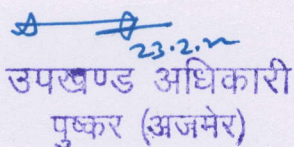 23.2.22
उपखण्ड अधिकारी
पुष्कर (अजमेर)